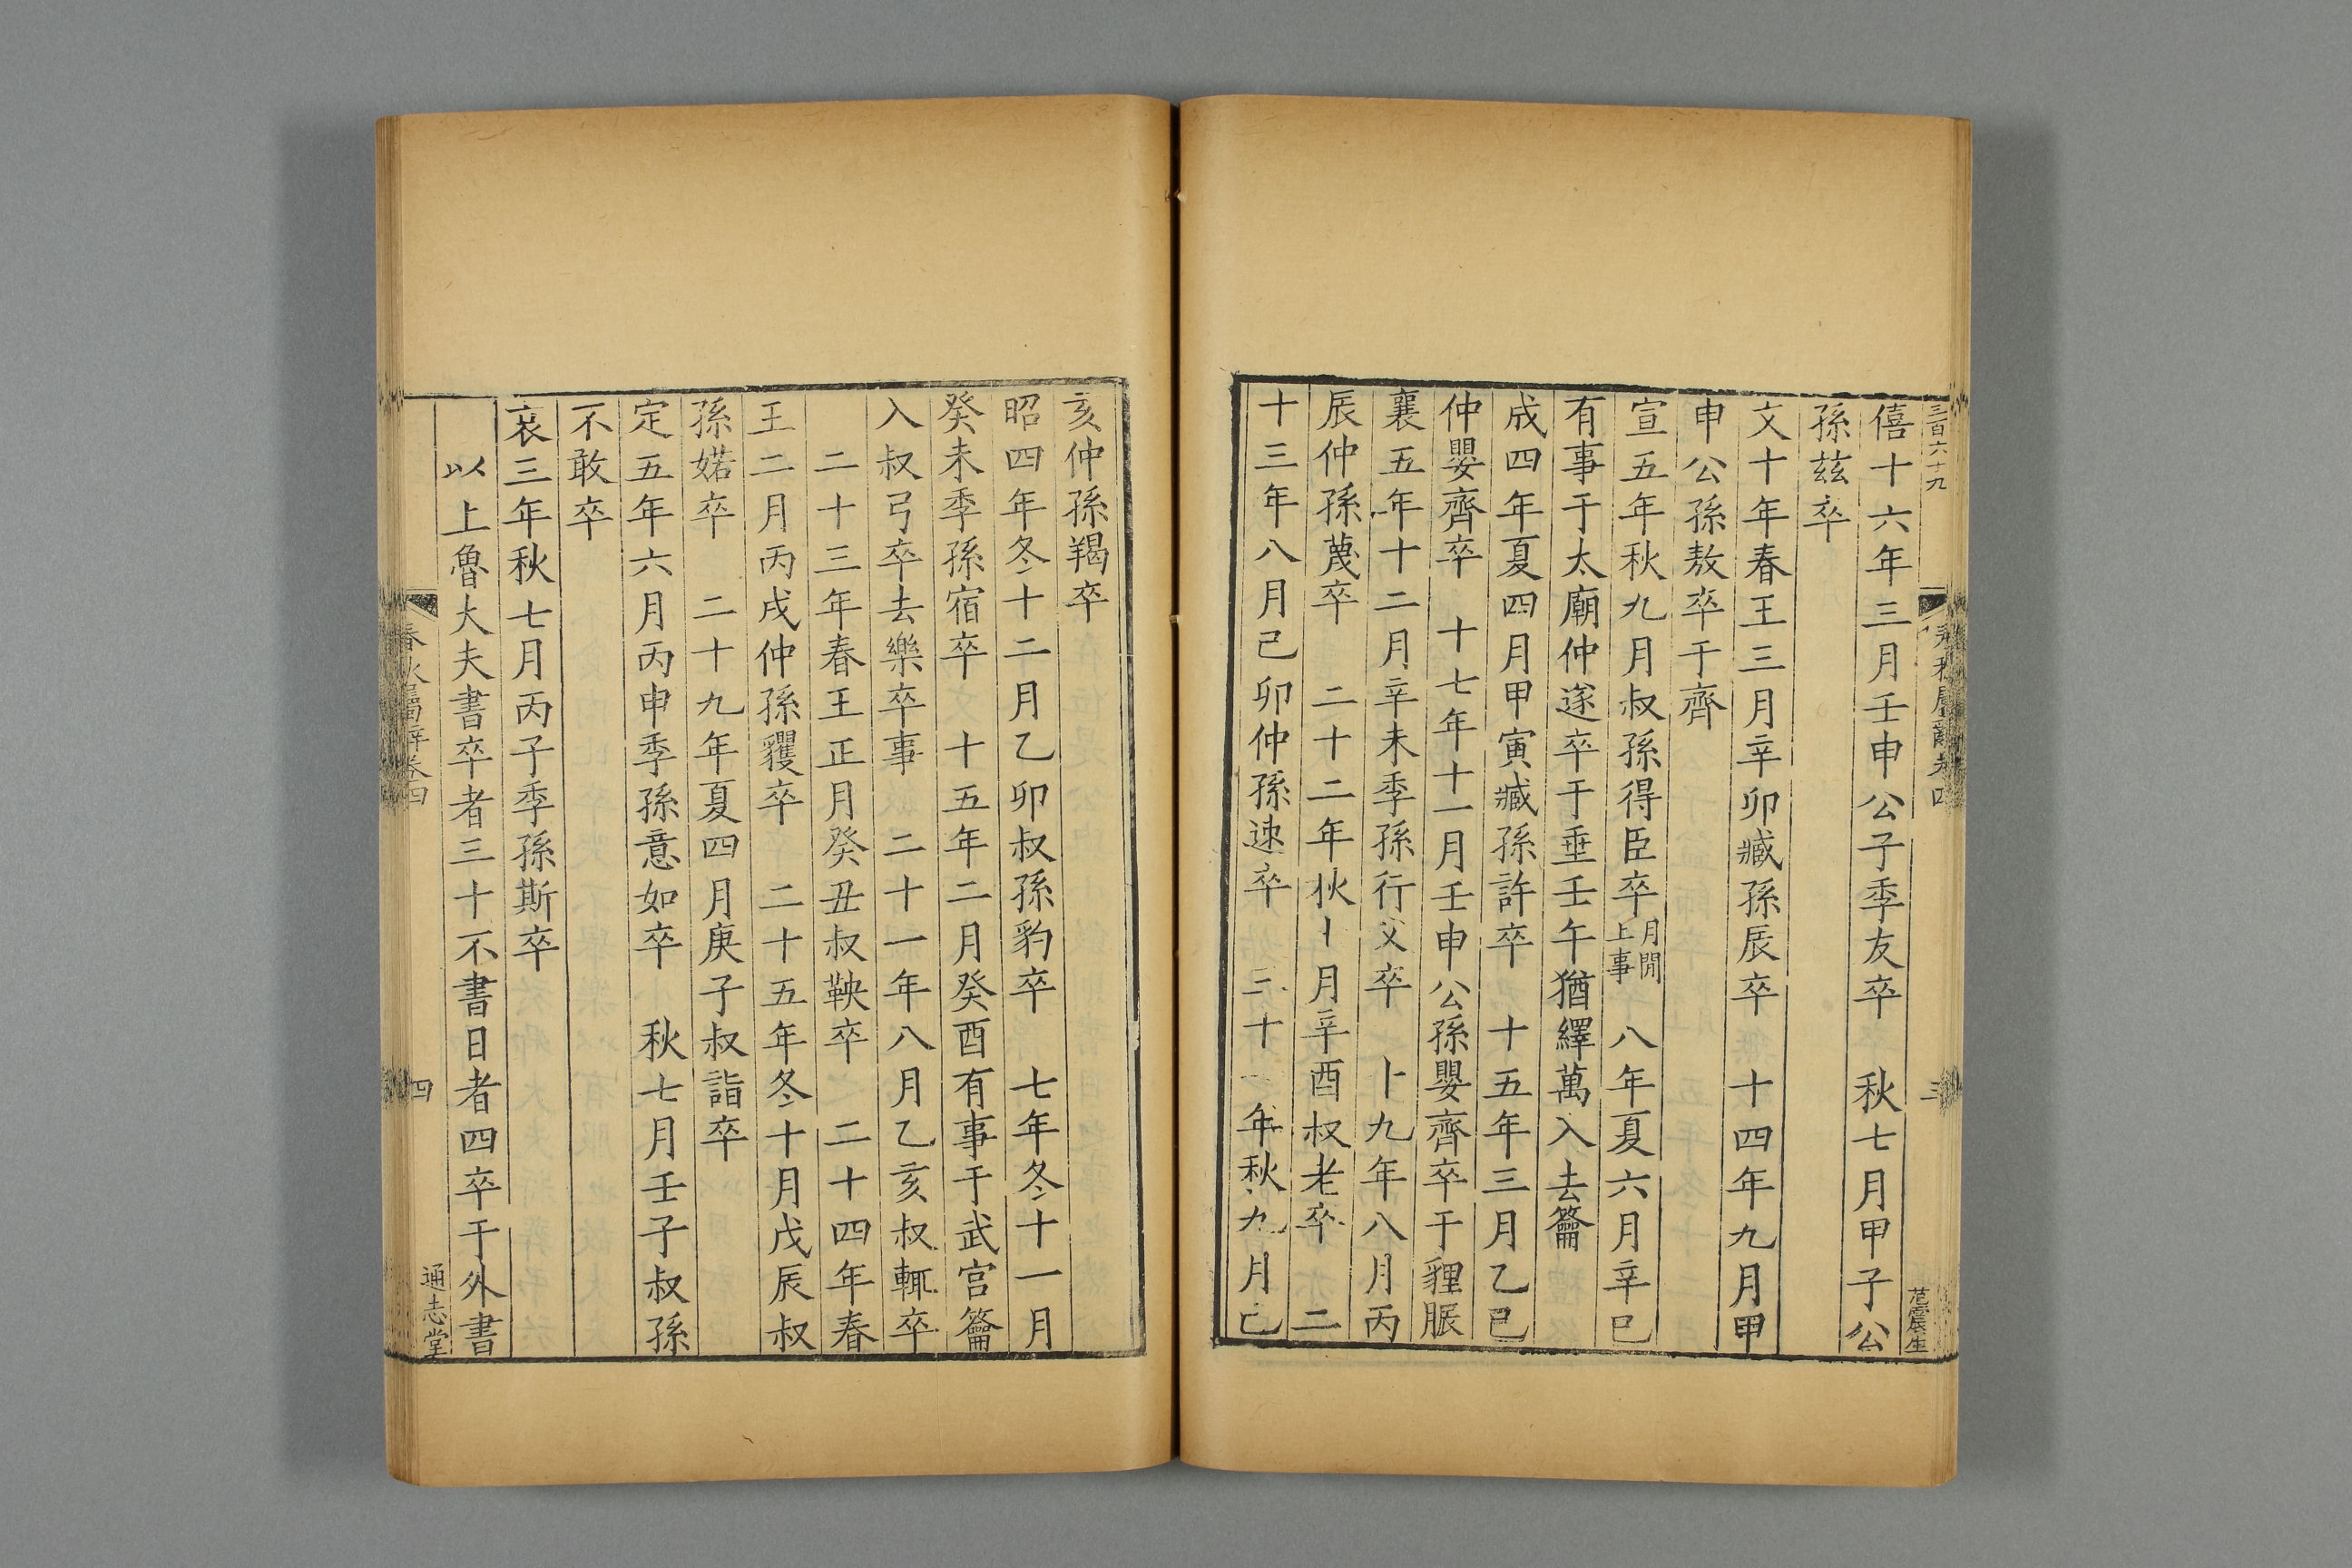 三百六十九
春秋屬辭卷四
三
范震生
僖十六年三月壬申公子季友卒　秋七月甲子公
孫茲卒
文十年春王三月辛卯臧孫辰卒　十四年九月甲
申公孫敖卒于齊
宣五年秋九月叔孫得臣卒月閒上事　八年夏六月辛巳
有事于太廟仲遂卒于垂壬午猶繹萬入去籥
成四年夏四月甲寅臧孫許卒　十五年三月乙巳
仲嬰齊卒　十七年十一月壬申公孫嬰齊卒于貍脤
襄五年十二月辛未季孫行父卒　十九年八月丙
辰仲孫蔑卒　二十二年秋七月辛酉叔老卒　二
十三年八月己卯仲孫速卒　三十一年秋九月己
亥仲孫羯卒
昭四年冬十二月乙卯叔孫豹卒　七年冬十一月
癸未季孫宿卒　十五年二月癸酉有事于武宮籥
入叔弓卒去樂卒事　二十一年八月乙亥叔輒卒
二十三年春王正月癸丑叔鞅卒　二十四年春
王二月丙戌仲孫貜卒　二十五年冬十月戊辰叔
孫婼卒　二十九年夏四月庚子叔詣卒
定五年六月丙申季孫意如卒　秋七月壬子叔孫
不敢卒
哀三年秋七月丙子季孫斯卒
以上魯大夫書卒者三十不書日者四卒于外書
春秋屬辭卷四
四
通志堂